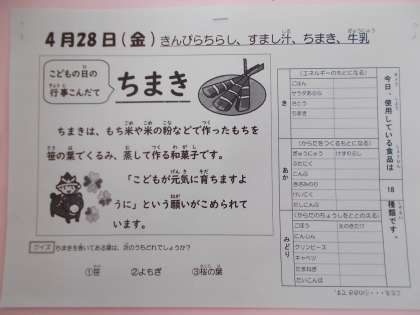 4月28日(金) きんぴらちらし、すまし汁、ちまき、牛乳
こどもの日の
行事こんだて
ちまき
ちまきは、もち米や米の粉などで作ったもちを
笹の葉でくるみ、蒸して作る和菓子です。
「こどもが元気に育ちますよ
うに」という願いがこめられて
います。
クイズ ちまきを巻いてある葉は、次のうちどれでしょうか？
①笹 ②よもぎ ③桜の葉
今日、使用している食品は 18 種類です。
き
(エネルギーのもとになる)
ごはん
サラダあぶら
さとう
ちまき
あか
(からだをつくるもとになる)
ぎゅうにゅう けずりぶし
ぶたにく
こんぶ
きざみのり
けいにく
だしこんぶ
みどり
(からだのちょうしをととのえる)
ごぼう えのきたけ
にんじん
グリンピース
キャベツ
たまねぎ
だいこんば